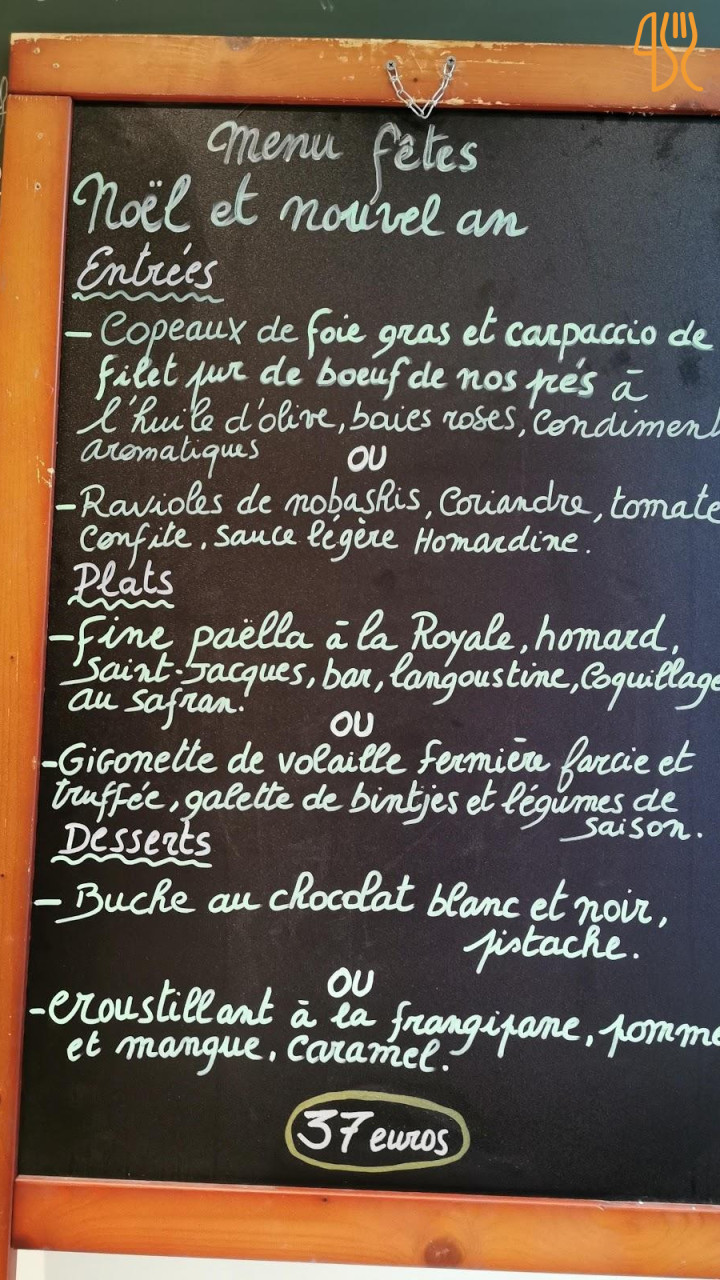 Menu fêtes
Noël et nouvel an
Entrées
- Copeaux de foie gras et carpaccio de
filet pur de boeuf de nos prés à
l'huile d'olive, baies roses, condiment
aromatiques
OU
- Ravioles de nobashis, Coriandre, tomate
Confite, sauce légère Homardine.
Plats
- fine paëlla à la Royale, homard,
Saint-Jacques, bar, langoustine, Coquillage
au safran.
OU
- Gigonette de volaille fermière farcie et
truffée, galette de bintjes et légumes de
saison.
Desserts
- Buche au chocolat blanc et noir,
pistache.
OU
- croustillant à la frangipane, pomme
et mangue, caramel.
37 euros